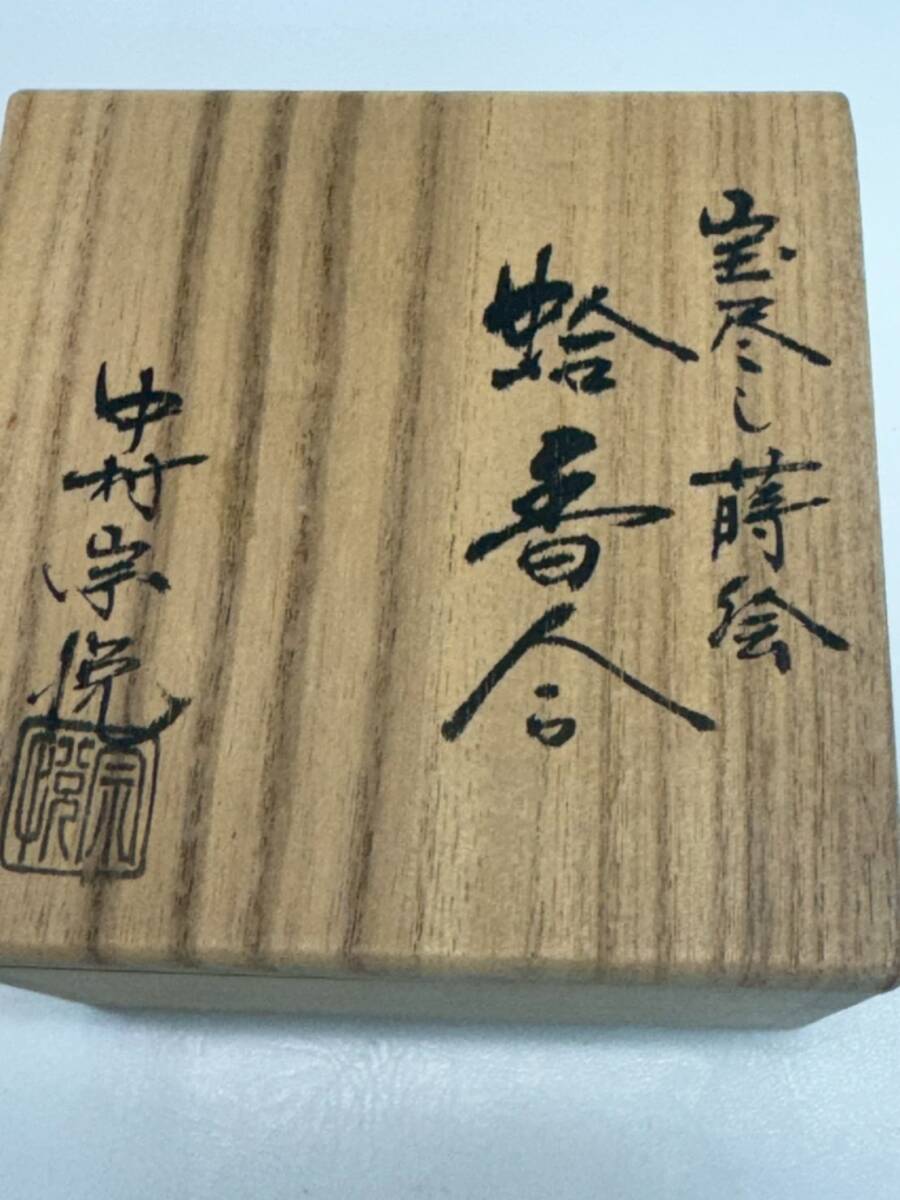 宝尽し蒔絵
蛤香合
中村宗悦
宗悦